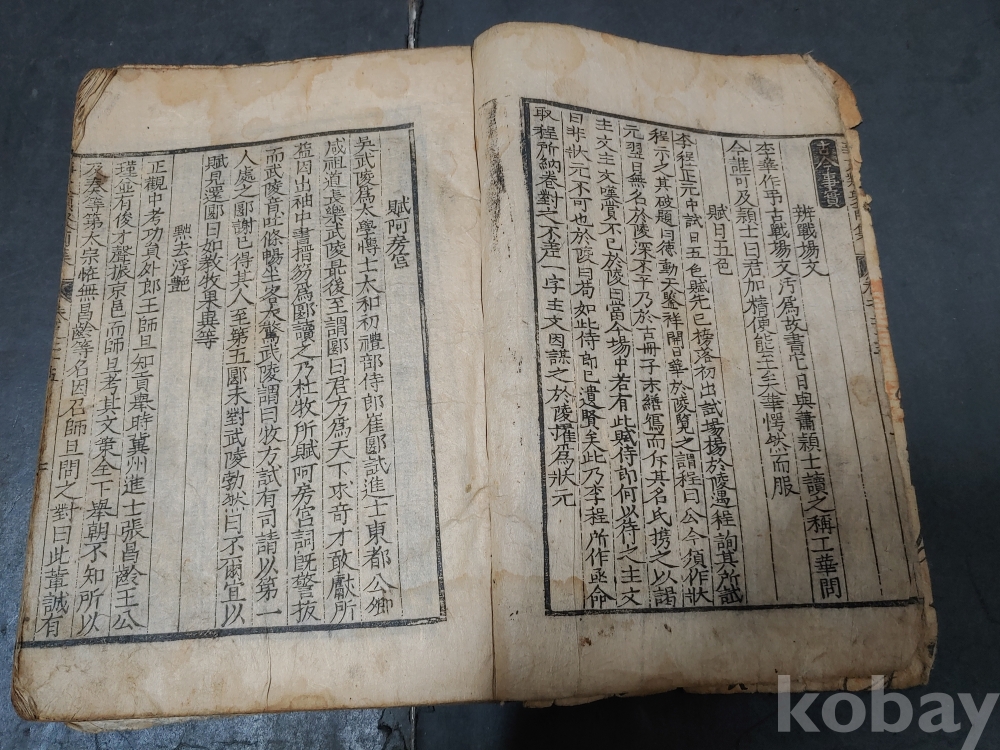 古今事實
辨戰場文
李華作弔古戰場文汚爲故書乜日與蕭穎士讀之稱工華問
今誰可及穎士曰君加精便能至矣華愕然而服
賦日五色
李程正元中試日五色賦先已榜落初出試場楊於陵遇程詢其所試
程示之其破題曰德動天鑒祥開日華於陵覽之謂程曰公今須作狀
元翌日無名於陵深不平乃於古冊子末繕寫而斥其名氏携之以謁
主文主文嘆賞不已於陵曰當今場中若有此賦侍郎何以待之主文
曰非狀元不可也於陵曰若如此侍郎已遺賢矣此乃李程所作亟命
取程所納卷對之不差一字主文因謀之於陵擢爲狀元
賦阿房宮
吳武陵爲太學愽士太和初禮部侍郎崔郾試進士東都公卿
咸祖道長樂武陵最後至謂郾曰君方爲天下求奇才敢獻所
益因出袖中書搢笏爲郾讀之乃杜牧所賦阿房宮詞旣警拔
而武陵音吐條暢坐客大驚武陵謂曰牧方試有司請以第一
人處之郾謝已得其人至第五郾未對武陵勃然曰不爾宜以
賦見還郾曰如教牧果異等
黜去浮艶
正觀中考功員外郎王師旦知貢擧時冀州進士張昌齡王公
瑾並有俊才聲振京邑而師旦考其文策全下擧朝不知所以
及奏等第太宗恠無昌齡等名因召師旦問之對曰此輩誠有
kobay